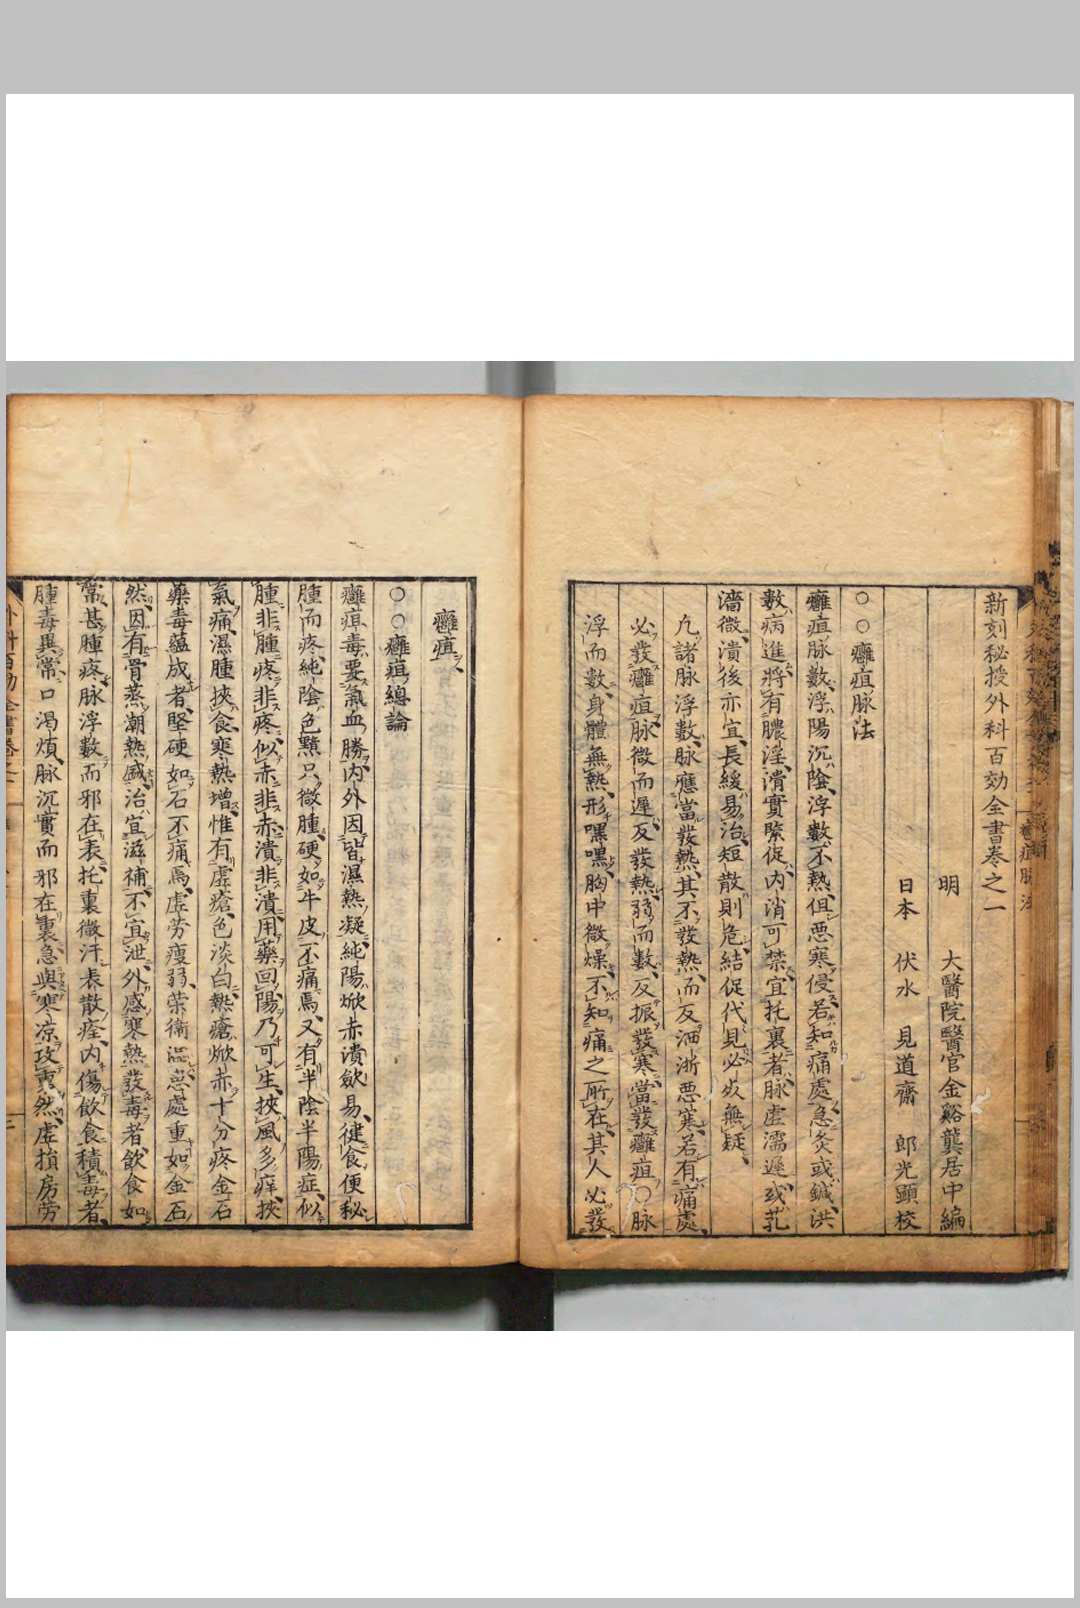 新刻秘授外科百効全書卷之一
明 大醫院醫官金谿龔居中編
日本 伏水 見道齋 郎光顕校
○○癰疽脉法
癰疽脉數浮陽沉陰浮數不熱但悪寒侵若知痛處急灸或鍼洪
數病進將有膿淫潰實緊促内消可禁宜托裏者脉虛濡遲或芤
濇微潰後亦宜長緩易治短散則危結促代見必死無疑
凢諸脉浮數脉應當發熱其不發熱而反洒淅悪寒若有痛處
必發癰疽脉微而遲反發熱弱而數反振發寒當發癰疽○脉
浮而數身體無熱形嘿嘿胸中微燥不知痛之所在其人必發
癰疽
○○癰疽總論
癰疽毒要氣血勝内外因皆濕熱凝純陽焮赤潰歛易健食便秘
腫而疼純陰色黯只微腫硬如牛皮不痛焉又有半陰半陽症似
腫非腫疼非疼似赤非赤潰非潰用藥回陽乃可生挾風多痒挾
氣痛濕腫挾食寒熱增惟有虛瘡色淡白熱瘡焮赤十分疼金石
藥毒蘊成者堅硬如石不痛焉虛劳瘦弱荣衛澁患處重如金石
然因有骨蒸潮熱感治宜滋補不宜泄外感寒熱發毒者飲食如
常甚腫疼脉浮數而邪在表托裏微汗表散痊内傷飲食積毒者
腫毒異常口渴煩脉沉實而邪在裏急與寒凉攻重然虛損房劳